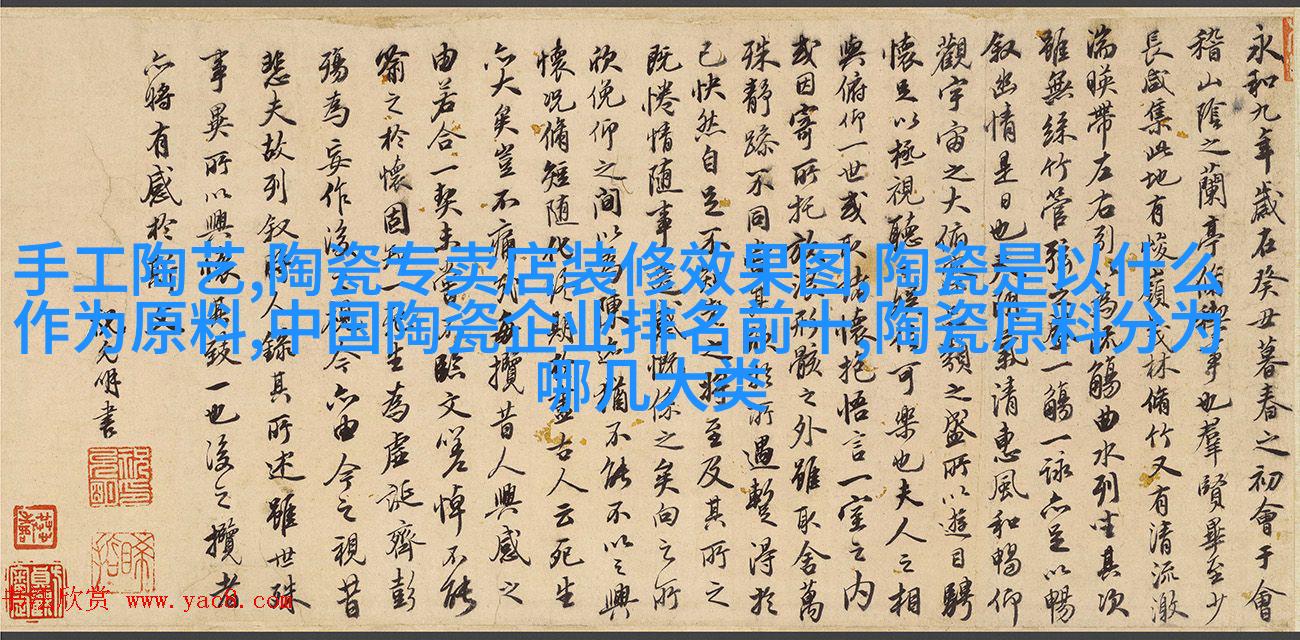 永和九年歲在癸丑暮春之初會于會
稽山陰之蘭亭脩禊事也羣賢畢至少
長咸集此地有峻嶺茂林脩竹又有清流激
湍暎帶左右引以為流觴曲水列坐其次
雖無絲竹管弦之盛一觴一詠亦足以暢
叙幽情是日也天朗氣清惠風和暢仰
觀宇宙之大俯察品類之盛所以遊目騁
懷足以極視聽娛信可樂也夫人之相
與俯仰一世或取諸懷抱悟言一室之內
或因寄所托放浪形骸之外雖取舍萬
殊靜躁不同當其欣於所遇暫得於
己快然自足不知老之將至及其所之
既惓情隨事遷感慨係之矣向之所
欣俛仰之間以為陳迹猶不能不以之興
懷況脩短隨化終期於盡古人云死生
亦大矣豈不痛哉每攬昔人興感之
由若合一契未嘗不臨文嗟悼不能
喻之於懷固知一死生為虛誕齊彭
殤為妄作後之視今亦由今之視昔
悲夫故列叙時人錄其所述雖世殊
事異所以興懷其致一也後之攬者
亦將有感於斯文
祝允明書
手工陶艺,陶瓷专卖店装修效果图,陶瓷是以什么
作为原料,中国陶瓷企业排名前十,陶瓷原料分为
哪几大类
书法欣赏 www.yac8.com